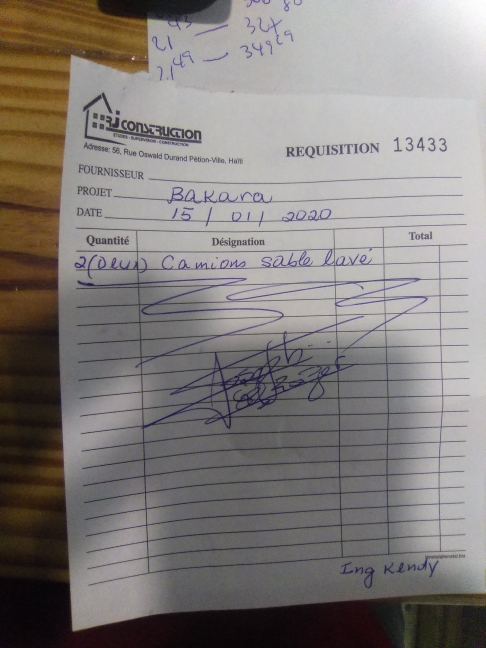 21
324
21 49 — 349 29
RJ CONSTRUCTION
ETUDES - SUPERVISION - CONSTRUCTION
Adresse: 56, Rue Oswald Durand Pétion-Ville, Haïti
REQUISITION 13433
FOURNISSEUR
PROJET Bakara
DATE 15 / 01 / 2020
Quantité Désignation Total
2 (Deux) Camions sable lavé
Joseph
Ing Kendy